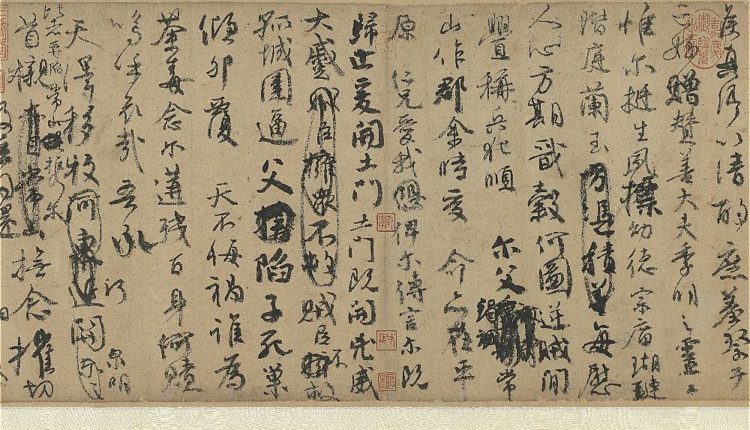 侯真卿以清酌庶羞祭于
亡姪贈贊善大夫季明之靈曰
惟爾挺生夙標幼德宗廟瑚璉
階庭蘭玉方憑積善每慰
人心方期戩穀何圖逆賊閒
釁稱兵犯順爾父竭誠常
山作郡余時受命亦在平
原仁兄愛我俾爾傳言爾既
歸止爰開土門土門既開兇威
大蹙賊臣擁眾不救賊臣不救
孤城圍逼父陷子死巢
傾卵覆天不悔禍誰為
荼毒念爾遘殘百身何贖
嗚乎哀哉吾承
天澤移牧河東近河關泉明
比者再陷常山攜爾
首櫬及茲同還撫念摧切